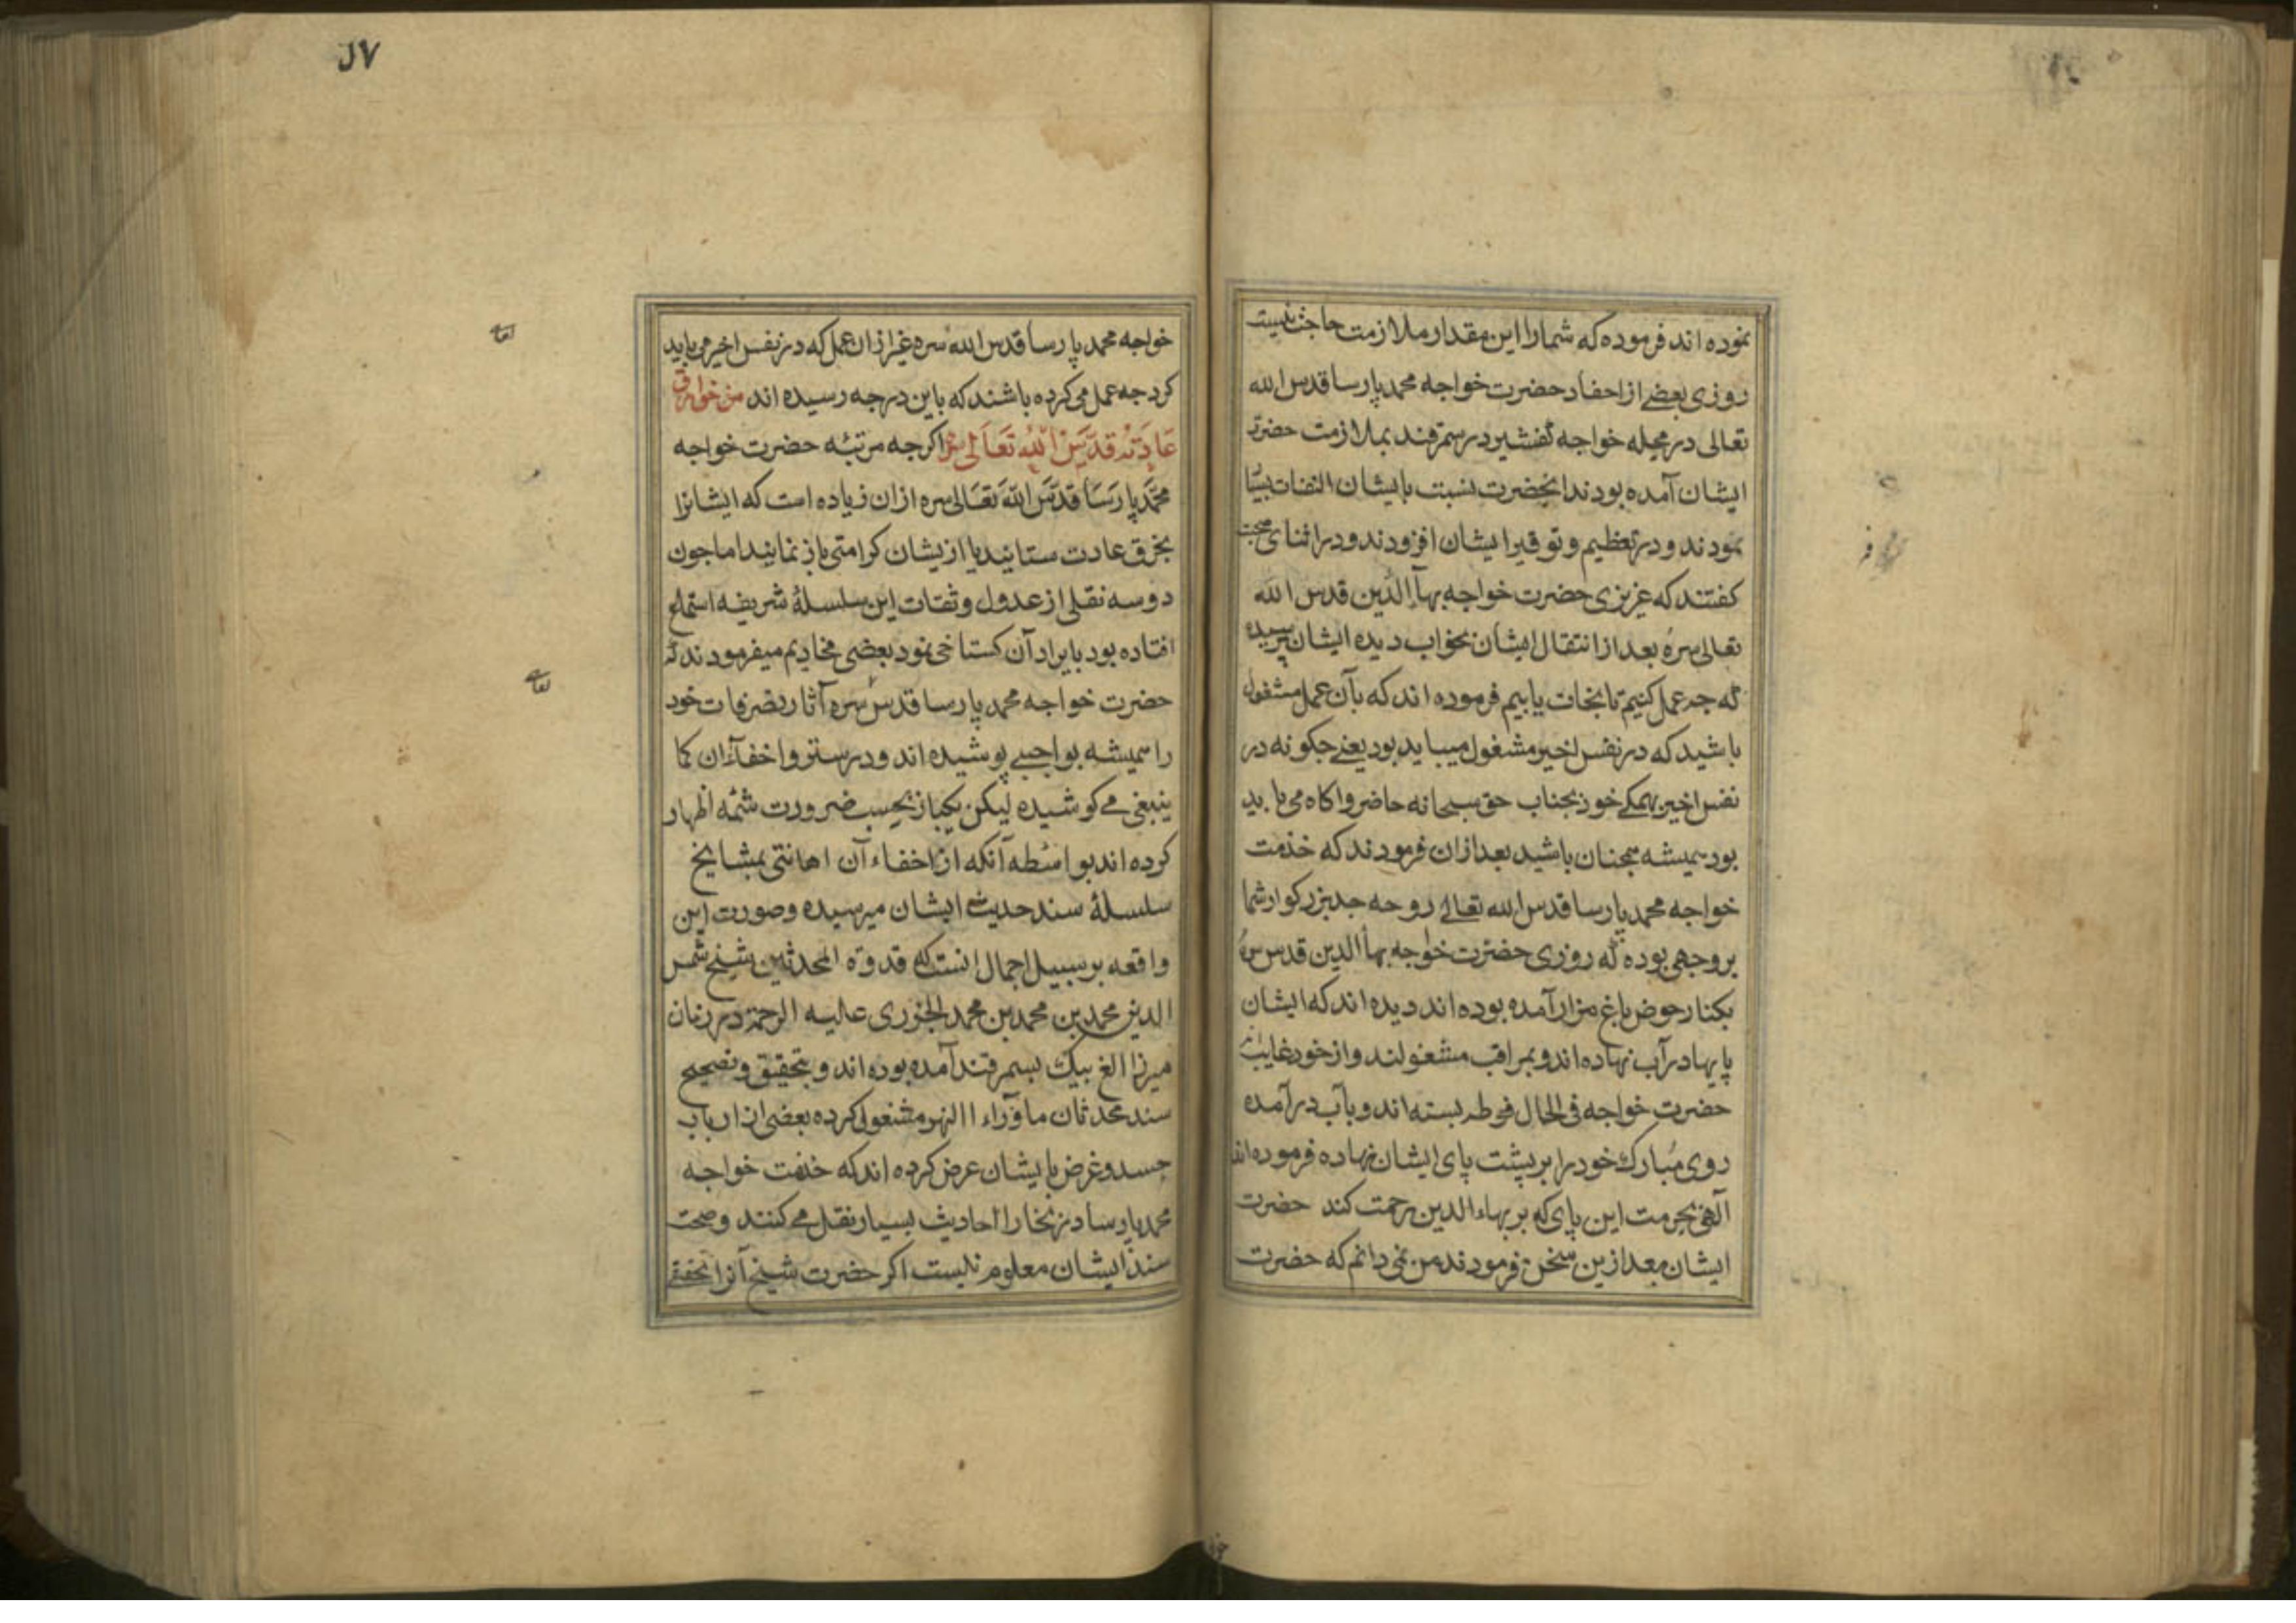 نموده اند فرموده که شمارا این مقدار ملازمت حاجت نیست
روزی بعضے از احفاد حضرت خواجه محمد پارسا قدس الله
تعالی در محله خواجه کفشیر در سمرقند بملازمت حضرت
ایشان آمده بودند انحضرت نسبت بایشان التفات بسیار
نمودند و در تعظیم و توقیر ایشان افزودند و در اثنای صحبت
کفتند که عزیزی حضرت خواجه بهاء الدین قدس الله
تعالی سره بعد از انتقال ایشان بخواب دیده ایشان پرسیده
که چه عمل کنیم تا نجات یابیم فرموده اند که بآن عمل مشغول
باشید که در نفس اخیر مشغول میباید بود یعنے جکونه در
نفس اخیر بهمکے خود بجناب حق سبحانه حاضر و اکاه می باید
بود همیشه همجنان باشید بعد ازان فرمودند که خدمت
خواجه محمد پارسا قدس الله تعالے روحه جد بزرکوار شما
بر وجهی بوده که روزی حضرت خواجه بهاء الدین قدس سره
بکنار حوض باغ مزار آمده بوده اند دیده اند که ایشان
پایها در آب نهاده اند و بمراقبه مشغولند و از خود غایب
حضرت خواجه فی الحال فوطه بسته اند و بآب در آمده
روی مبارک خود را بر پشت پای ایشان نهاده فرموده اند
آلهی بحرمت این پای که بر بهاء الدین رحمت کند حضرت
ایشان بعد ازین سخن فرمودند من نمی دانم که حضرت
۸۷
خواجه محمد پارسا قدس الله سره غیر ازان عمل که در نفس اخیر می باید
کرد جه عمل می کرده باشند که باین درجه رسیده اند من خوارق
عَادَتَه قدّس اللّٰه تَعَالٰی سره اکرجه مرتبه حضرت خواجه
محمَّد پارسَا قدّسَ اللّه تعَالی سره ازان زیاده است که ایشانرا
بخرق عادت ستایند یا از یشان کرامتی باز نمایند اما جون
دو سه نقلی از عدول و ثقات این سلسلهٔ شریفه استماع
افتاده بود بایراد آن کستاخی نمود بعضی مخادیم میفرمودند که
حضرت خواجه محمد پارسا قدس سره آثار و تصرفات خود
را همیشه بواجبے پوشیده اند و در ستر و اخفاء آن کما
ینبغی مے کوشیده لیکن یکبار بحسب ضرورت شمه اظهار
کرده اند بواسطه آنکه از اخفاء آن اهانتی بمشایخ
سلسلهٔ سند حدیث ایشان میرسیده و صورت این
واقعه بر سبیل اجمال انست که قدوة المحدثین شیخ شمس
الدین محمد بن محمد بن محمد الجزری علیه الرحمة در زمان
میرزا الغ بیک بسمرقند آمده بوده اند و بتحقیق و تصحیح
سند محدثان ماوراء االنهر مشغولی کرده بعضی از ارباب
حسد و غرض بایشان عرض کرده اند که خدمت خواجه
محمد پارسا در بخارا احادیث بسیار نقل مے کنند و صحت
سند ایشان معلوم نیست اکر حضرت شیخ آنرا تحقیق